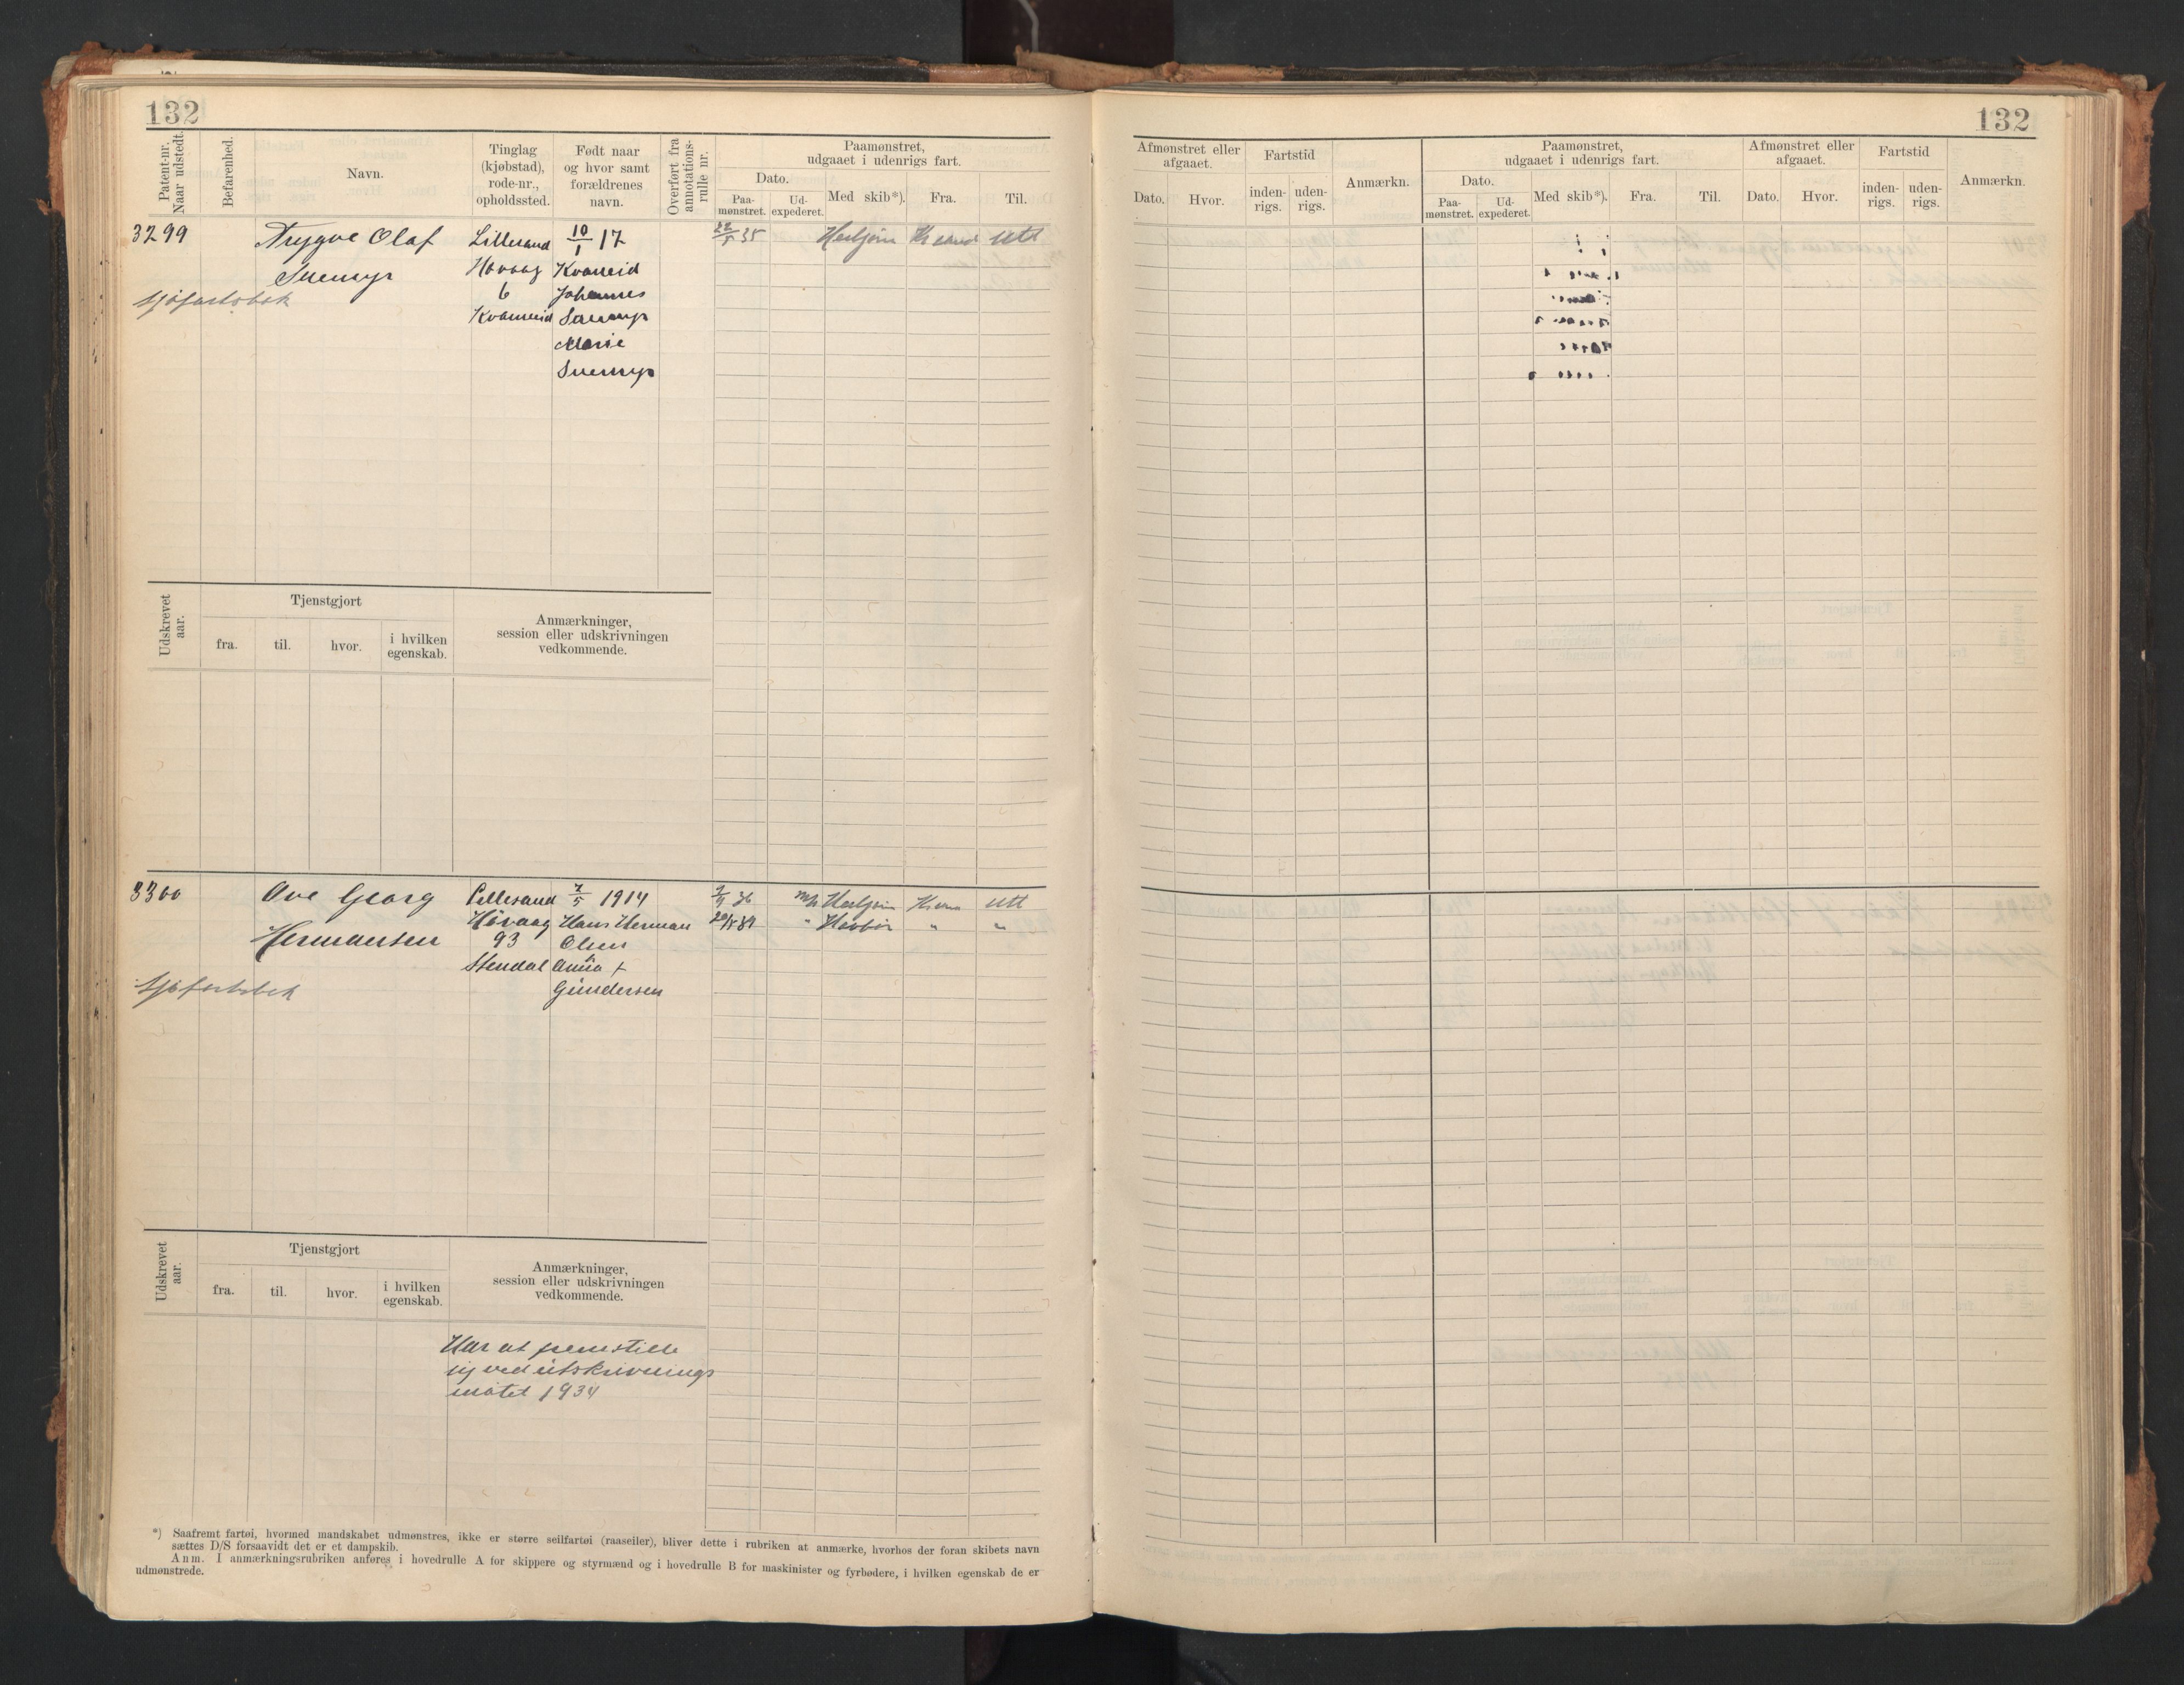 132
132
Patent-nr. Naar udstedt.
Befarenhed.
Navn.
Tinglag (kjøbstad), rode-nr., opholdssted.
Født naar og hvor samt forældrenes navn.
Overført fra annotations-rulle nr.
Paamønstret, udgaaet i udenrigs fart.
Dato.
Paa-mønstret.
Ud-expederet.
Med skib*).
Fra.
Til.
Afmønstret eller afgaaet.
Dato.
Hvor.
Fartstid
inden-rigs.
uden-rigs.
Anmærkn.
Paamønstret, udgaaet i udenrigs fart.
Dato.
Paa-mønstret.
Ud-expederet.
Med skib*).
Fra.
Til.
Afmønstret eller afgaaet.
Dato.
Hvor.
Fartstid
inden-rigs.
uden-rigs.
Anmærkn.
3299 Trygve Olaf Lillesand 10/1 17 22/5 35
Høvaag Kvanneid
sjøfartsbok
6 Johannes
Kvanneid
Marie
Udskrevet aar.
Tjenstgjort
fra.
til.
hvor.
i hvilken egenskab.
Anmærkninger, session eller udskrivningen vedkommende.
3300 Ove Georg Lillesand 7/5 1914
Hermansen Høvaag Hans Herman
93 Olsen
Stendal Anna
sjøfartsbok Gundersen
Udskrevet aar.
Tjenstgjort
fra.
til.
hvor.
i hvilken egenskab.
Anmærkninger, session eller udskrivningen vedkommende.
Har at fremstille
sig ved utskrivnings
møtet 1934
*) Saafremt fartøi, hvormed mandskabet udmønstres, ikke er større seilfartøi (raaseiler), bliver dette i rubriken at anmærke, hvorhos der foran skibets navn
sættes D/S forsaavidt det er et dampskib.
Anm. I anmærkningsrubriken anføres i hovedrulle A for skippere og styrmænd og i hovedrulle B for maskinister og fyrbødere, i hvilken egenskab de er
udmønstrede.